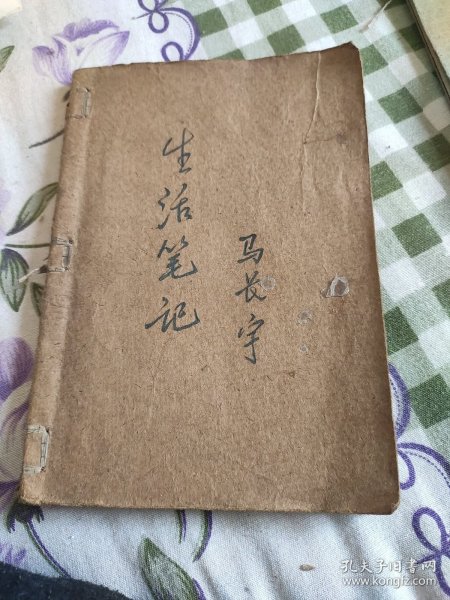 生活笔记
马长宇
孔夫子旧书网
www.kongfz.com